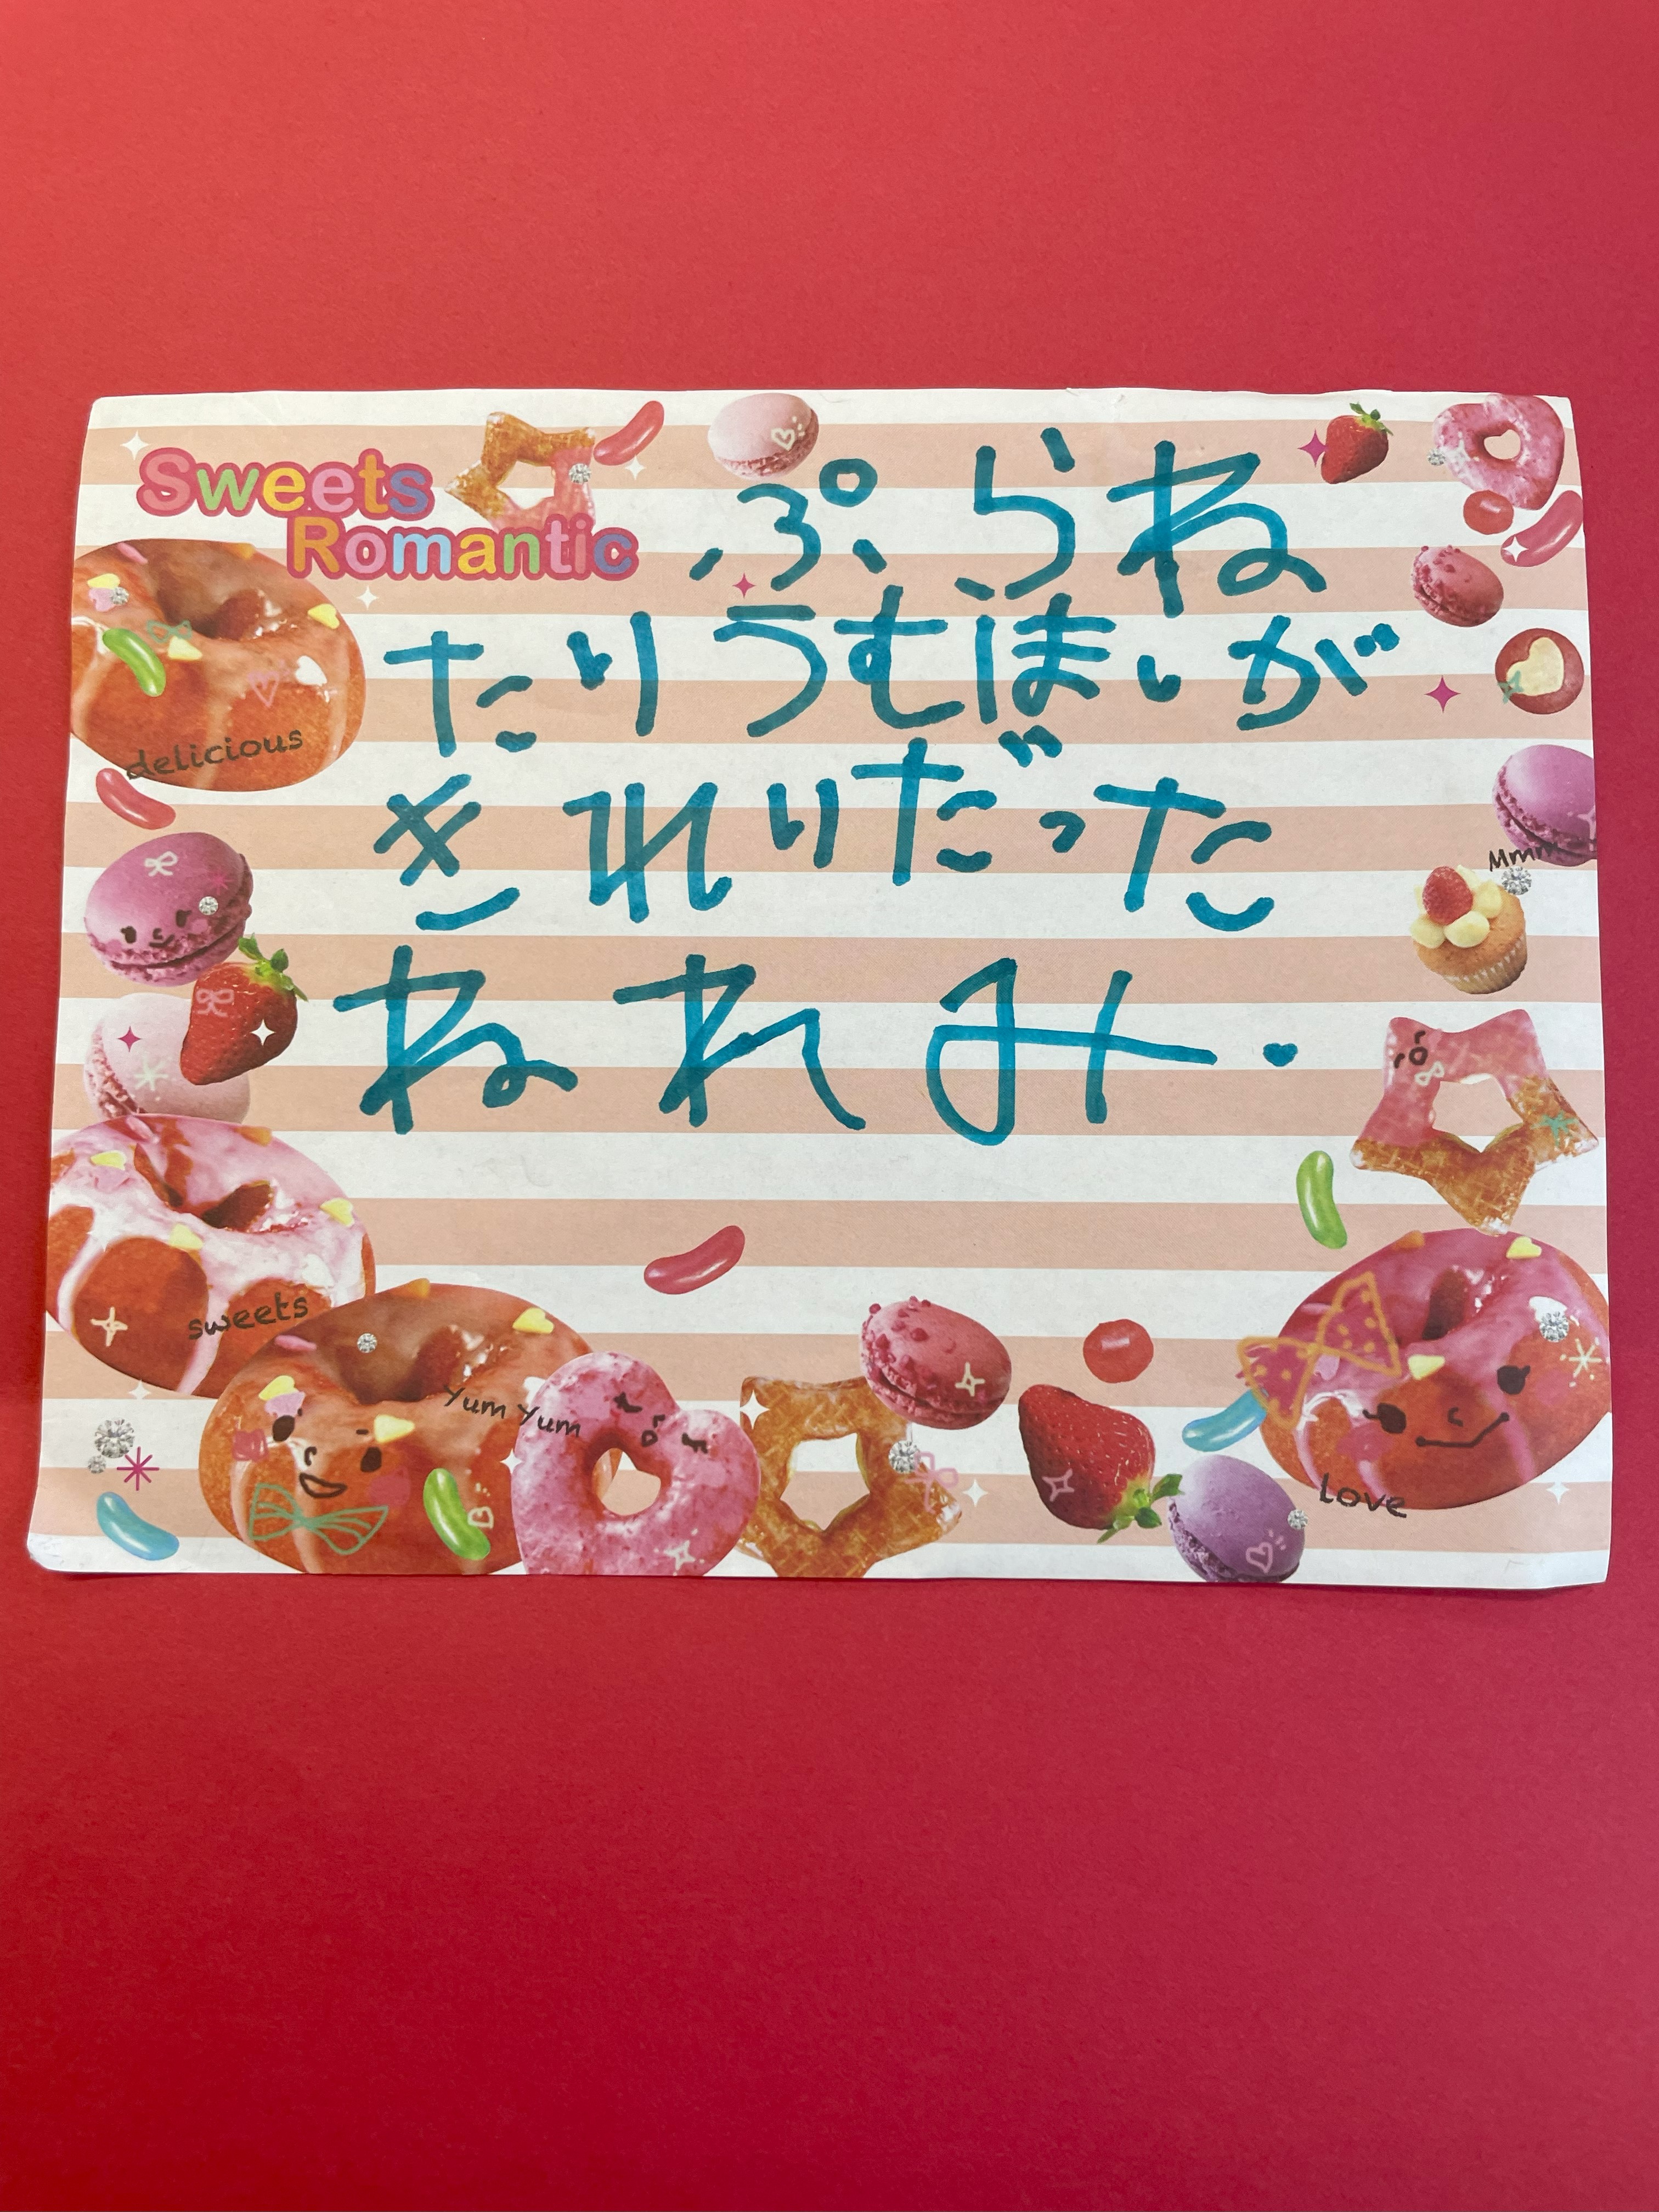 Sweets
Romantic
ぷらね
たりうむほしが
きれいだった
ねれみ.
delicious
Mmm
sweets
Yum Yum
love